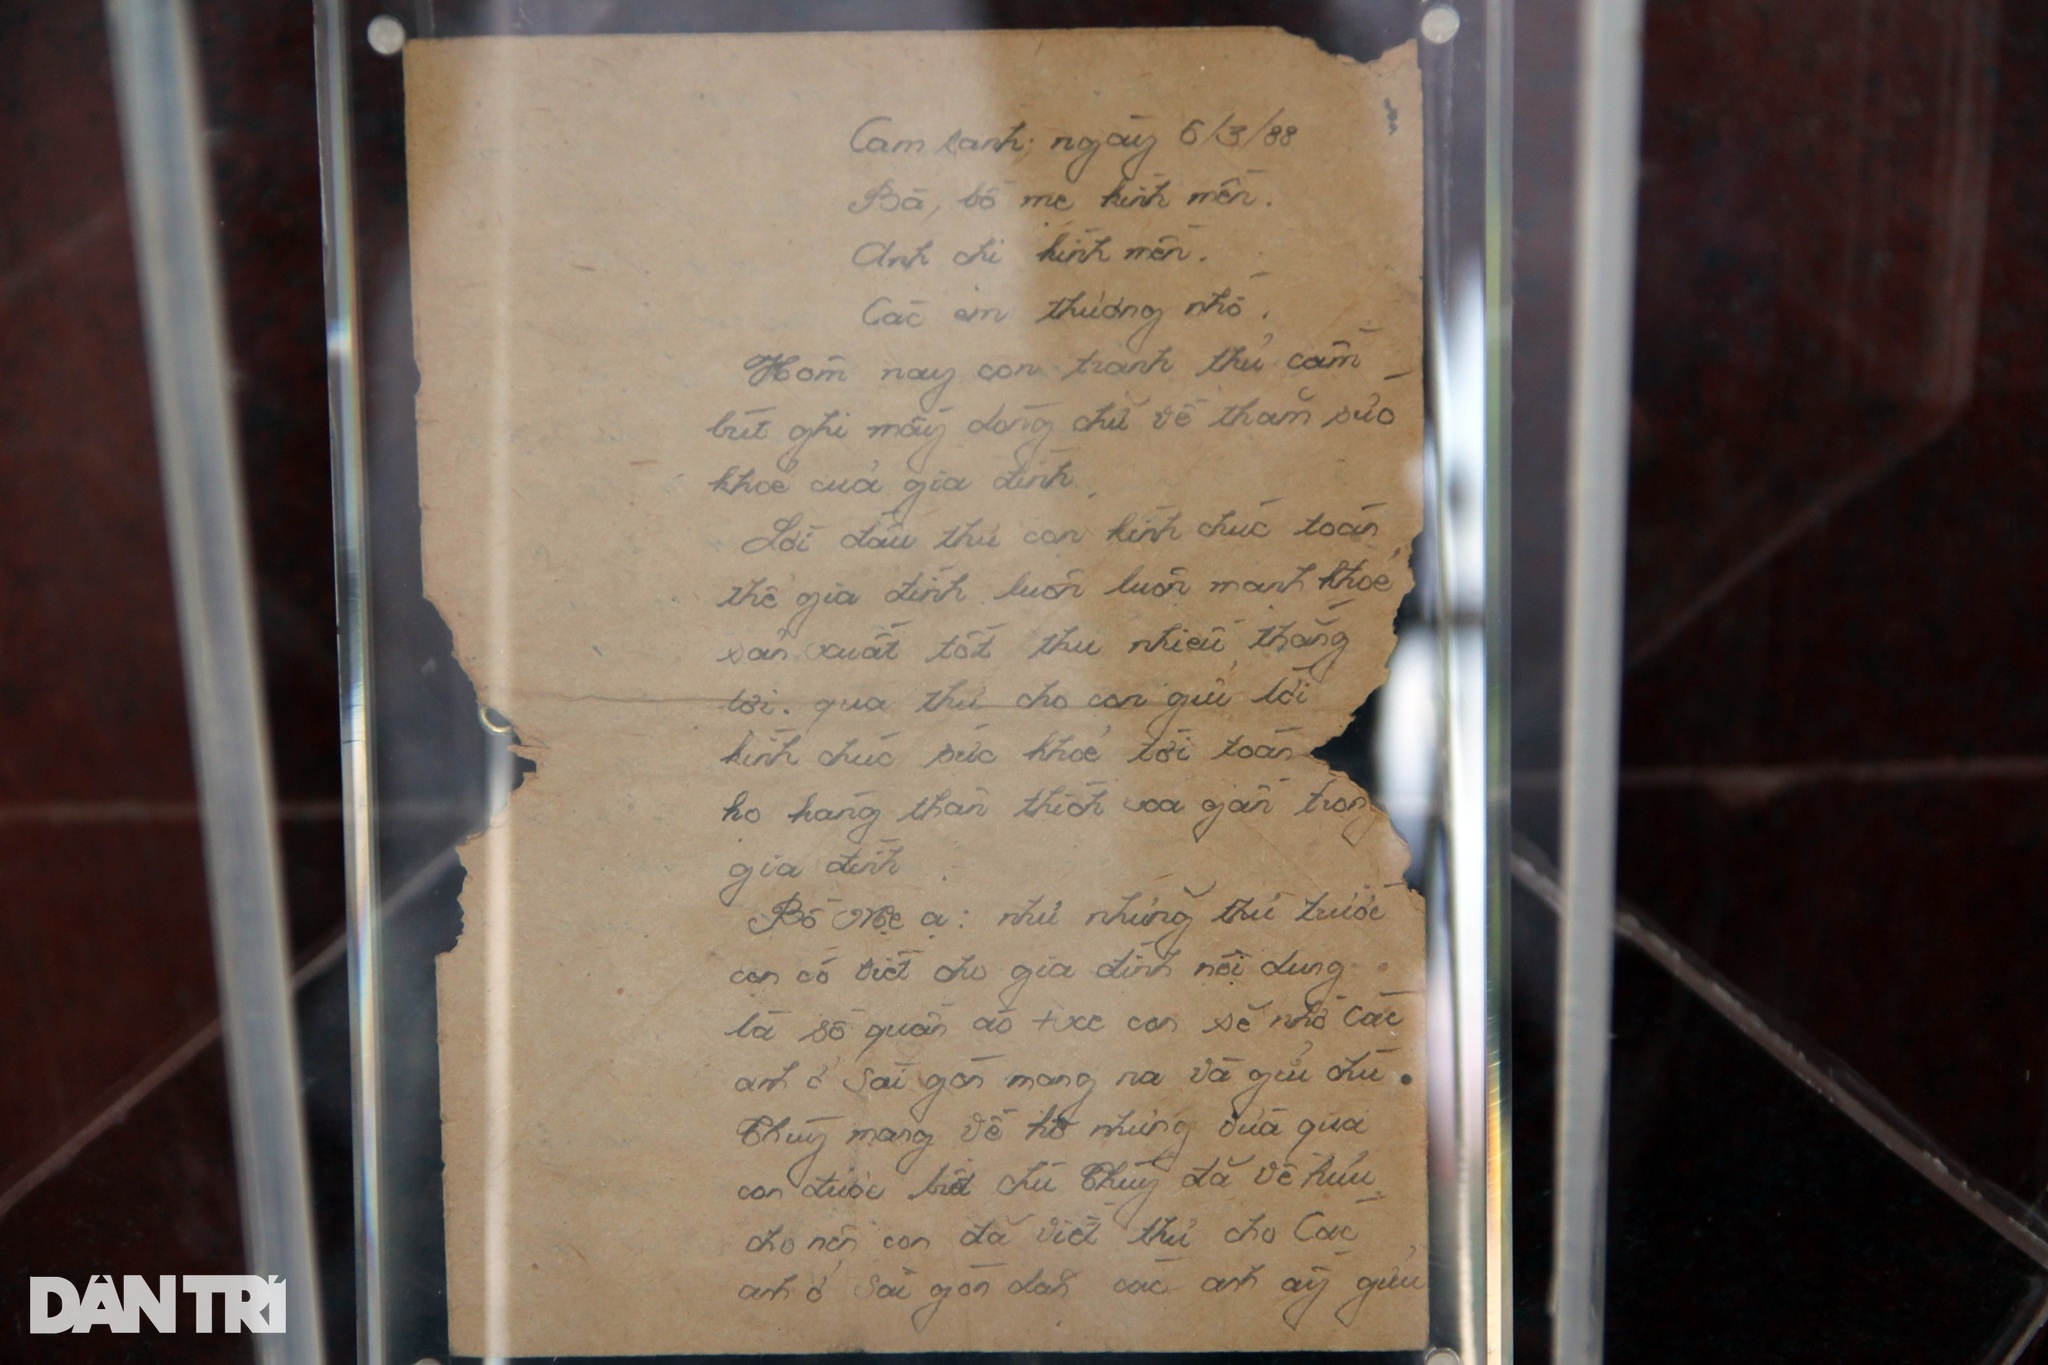 Cam ranh; ngày 6/3/88
Bà, bố mẹ kính mến.
Anh chi kính mến.
Các em thương nhớ.
Hôm nay con tranh thủ cầm
bút ghi mấy dòng chữ về thăm sức
khoẻ cuả gia đình.
Lời đầu thư con kính chúc toàn
thể gia đình luôn luôn manh khoẻ
sản xuất tốt thu nhiều thắng
lơi. qua thư cho con gửi lời
kính chúc sức khoẻ tới toàn
ho hàng thân thích xa gần trong
gia đình
Bố Mẹ ạ: như những thư trước
con có viết cho gia đình nội dung
là số quần áo con sẽ nhờ Các
anh ở Sài gòn mang ra và gửi chú
Thuỷ mang về hộ nhưng vừa qua
con được biết chú Thuỷ đã về hưu
cho nên con đã viết thư cho Các
anh ở Sài gòn dặn các anh ấy gửi
DÂN TRÍ